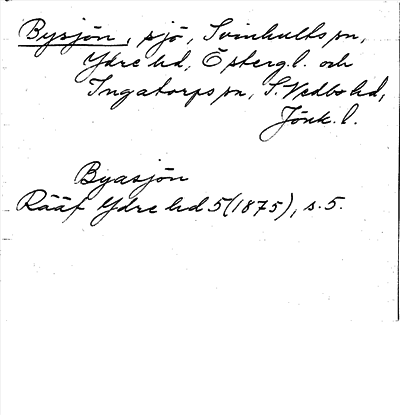 Bysjön, sjö, Svinhults sn,
Ydre hd, Österg. l. och
Ingatorps sn, S. Vedbo hd,
Jönk. l.
Byasjön
Rääf Ydre hd 5 (1875), s. 5.